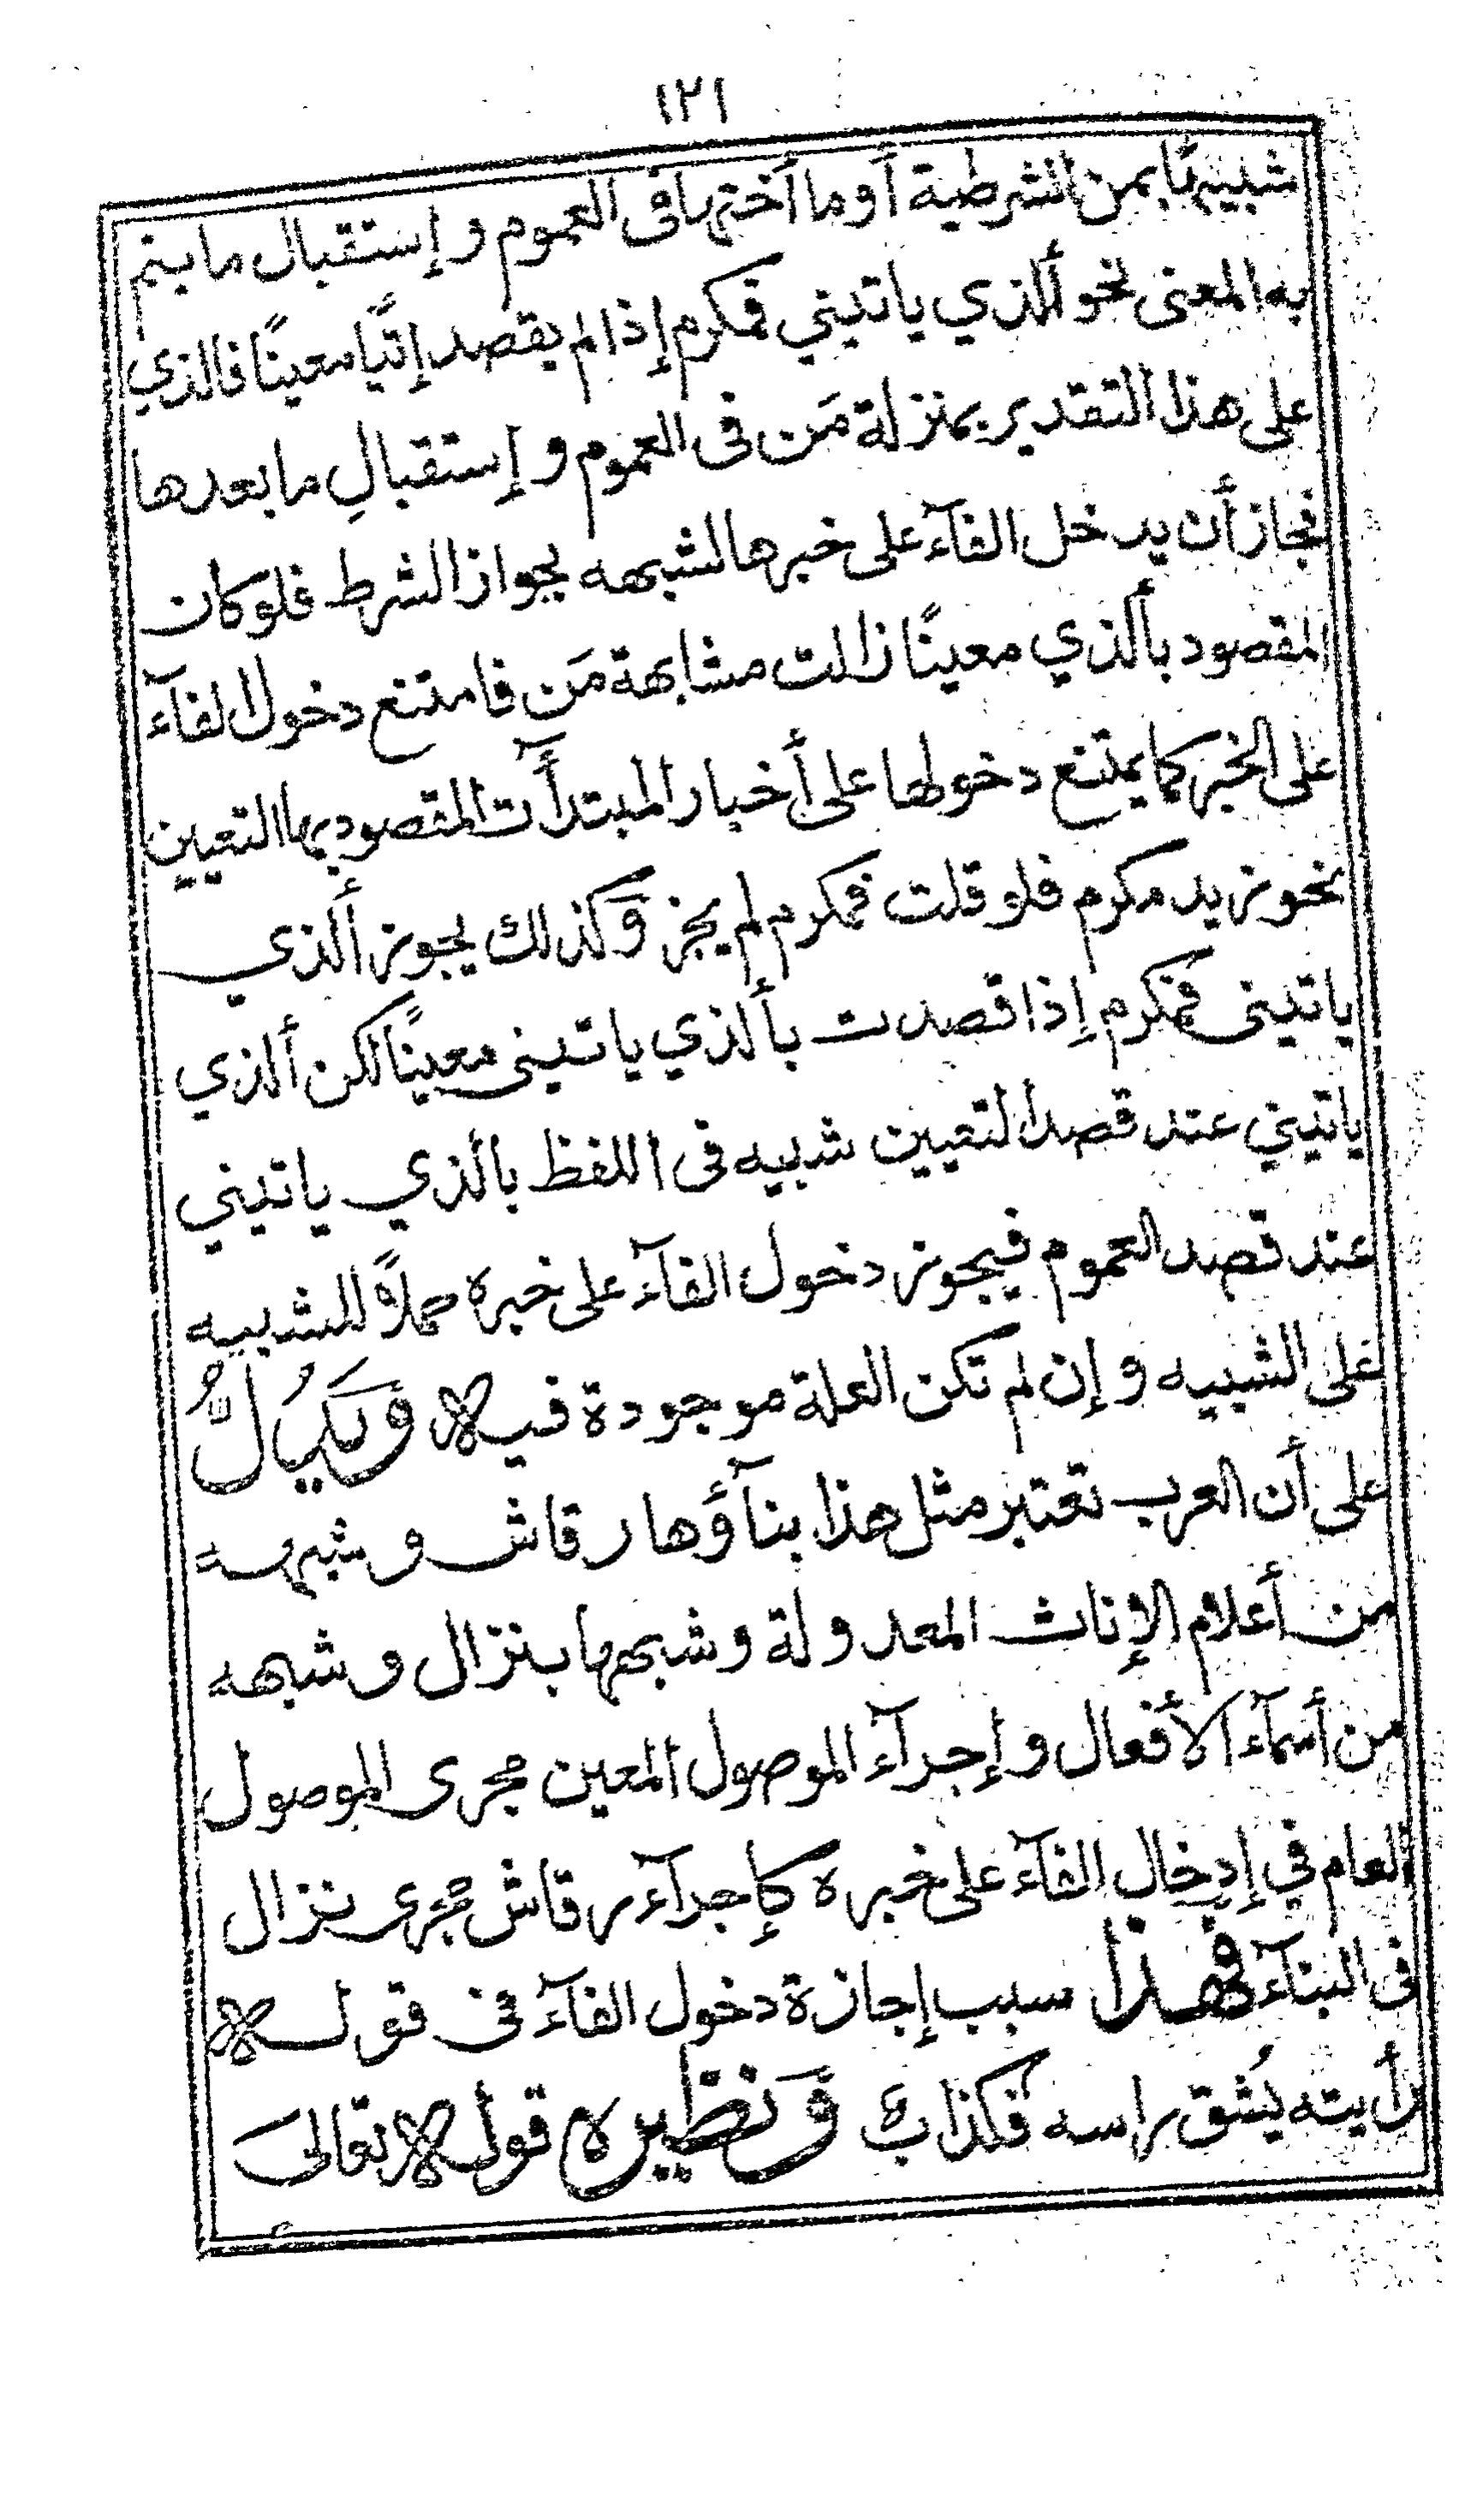 ١٢١
شبيهًا بمن الشرطية أو ما أختها فى العموم و إستقبال ما يتم
به المعنى نحو ألذي ياتيني فمكرم إذا لم يقصد إتيًا معينًا فالذي
على هذا التقدير بمنزلة مَن فى العموم و إستقبالِ ما بعدها
فجاز أن يدخل الفآء على خبرها لشبهه بجواز الشرط فلو كان
المقصود بألذي معينًا زالت مشابهة مَن فامتنع دخول الفآء
على الخبر كما يمتنع دخولها على أخبار المبتدأآت المقصود بها التعيين
نحو زيد مكرم فلو قلت فمكرم لم يجز وَكذلك يجوز ألذي
ياتينى فمكرم إذا قصدت بألذي ياتينى معينًا لكن ألذي
ياتيني عند قصد التعيين شبيه فى اللفظ بالذي ياتيني
عند قصد العموم فيجوز دخول الفآء على خبره حملاً للشبيه
على الشبيه و إن لم تكن العلة موجودة فيه وَيَدُلُّ
على أن العرب تعتبر مثل هذا بنآؤها رقاش و شبهه
من أعلام الإناث المعدولة و شبهها بنزال و شبهه
من أسمآء الأفعال و إجرآء الموصول المعين مجرى الموصول
العام في إدخال الفآء على خبره كإجرآء رقاش مجرى نزال
فى البنآء فهذا سبب إجازة دخول الفآء فى قوله
رأيته يُشق راسه فكذاب وَنظيره قوله تعالىَ